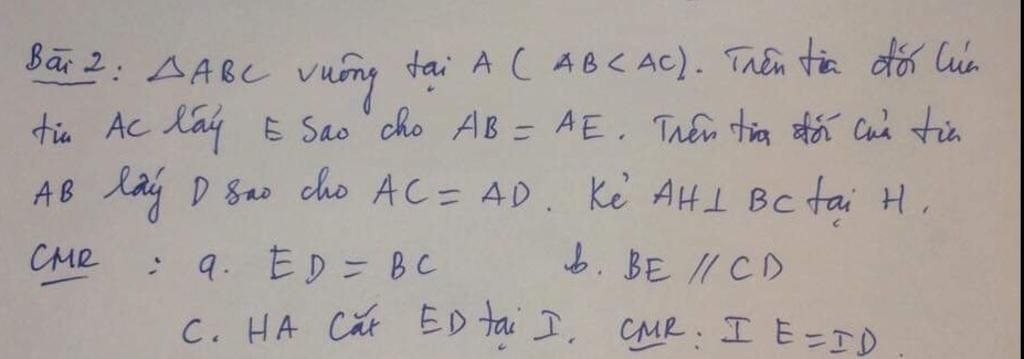 Bài 2: △ABC vuông tại A ( AB < AC). Trên tia đối của
tia AC lấy E sao cho AB = AE. Trên tia đối của tia
AB lấy D sao cho AC = AD. Kẻ AH⊥ BC tại H.
CMR : a. ED = BC b. BE // CD
C. HA cắt ED tại I. CMR: I E = ID.